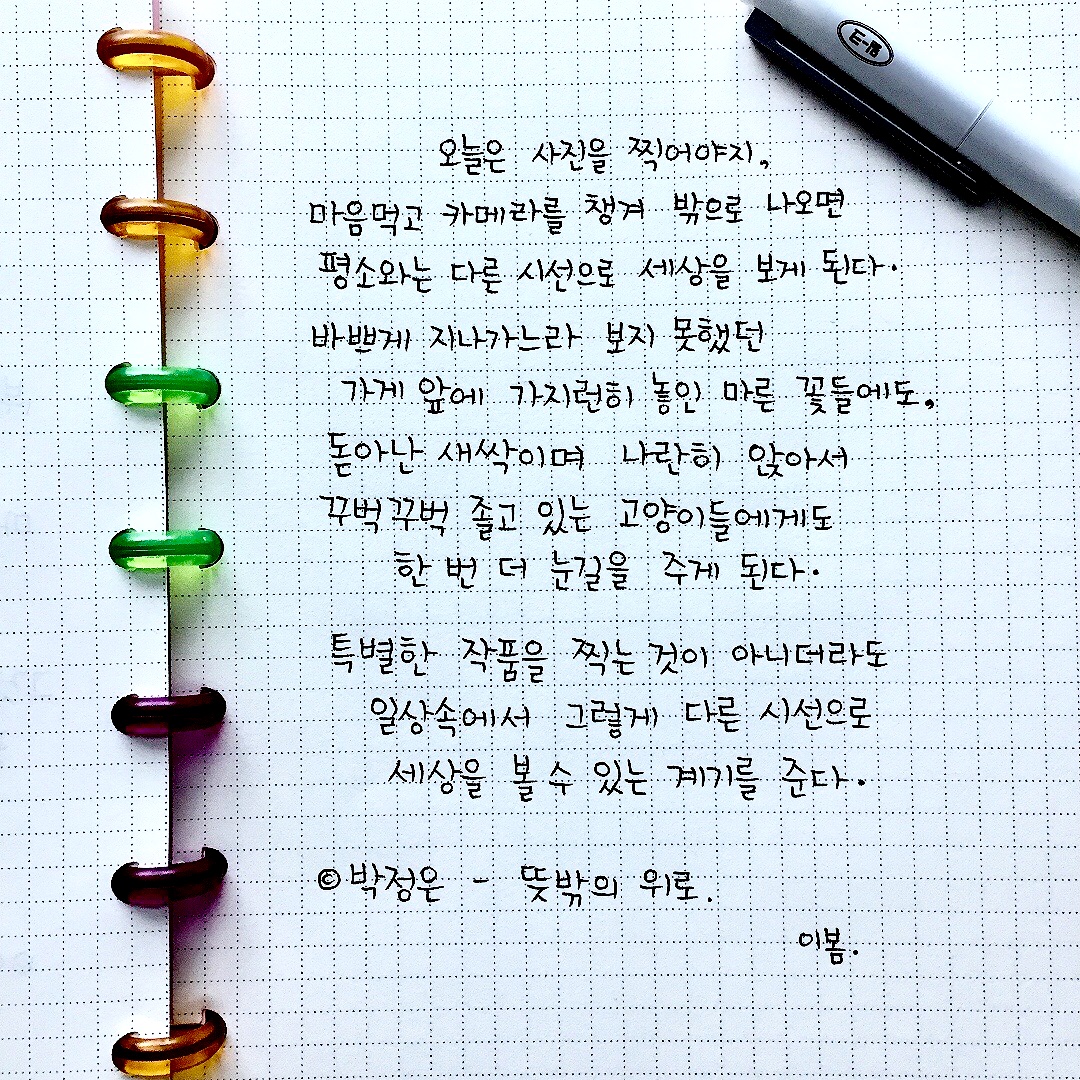 오늘은 사진을 찍어야지,
마음먹고 카메라를 챙겨 밖으로 나오면
평소와는 다른 시선으로 세상을 보게 된다.
바쁘게 지나가느라 보지 못했던
가게 앞에 가지런히 놓인 마른 꽃들에도,
돋아난 새싹이며 나란히 앉아서
꾸벅꾸벅 졸고 있는 고양이들에게도
한 번 더 눈길을 주게 된다.
특별한 작품을 찍는 것이 아니더라도
일상속에서 그렇게 다른 시선으로
세상을 볼 수 있는 계기를 준다.
©박정은 - 뜻밖의 위로.
이봄.